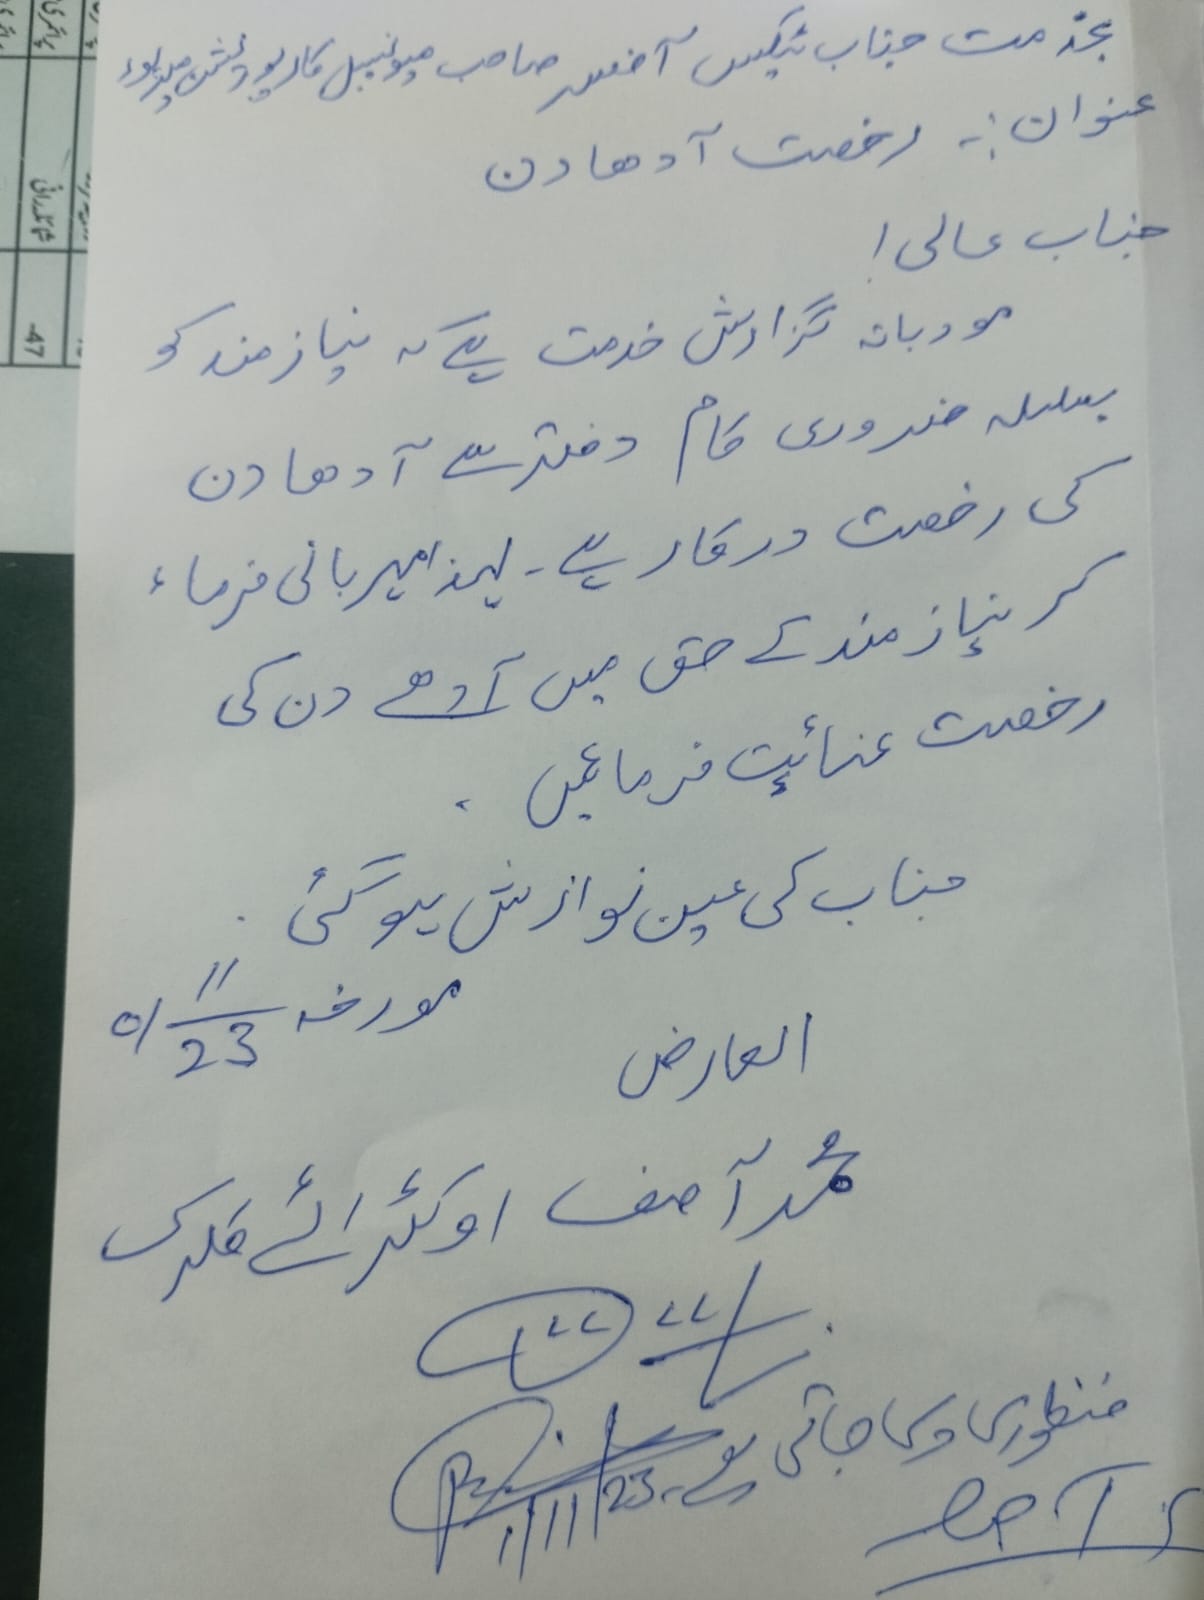 بخدمت جناب ٹیکس آفیسر صاحب میونسپل کارپوریشن میرپور
عنوان :۔ رخصت آدھا دن
جناب عالی !
مودبانہ گزارش خدمت ہے کہ نیازمند کو
بسلسلہ ضروری کام دفتر سے آدھا دن
کی رخصت درکار ہے۔ لہذا مہربانی فرماء
کر نیازمند کے حق میں آدھے دن کی
رخصت عنائیت فرمائیں ۔
جناب کی عین نوازش ہوگئی ۔
مورخہ 01/11/23
العارض
محمد آصف اوکٹرائے کلرک
منظوری دی جاتی ہے۔
1/11/23
47